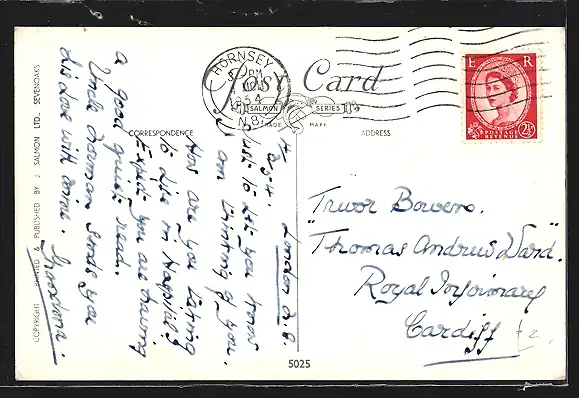 Post Card
SALMON SERIES
TRADE MARK
CORRESPONDENCE
ADDRESS
HORNSEY
PM
1954
N.8.
E R
POSTAGE
REVENUE
2½
London
Just to let you know
I am thinking of you.
How are you liking
to be in Hospital?
Expect you are having
a good quiet read.
Uncle Norman sends you
his love with mine. Grandma.
Trevor Bowens.
"Thomas Andrews Ward."
Royal Infirmary
Cardiff
5025
COPYRIGHT PRINTED & PUBLISHED BY J. SALMON LTD., SEVENOAKS